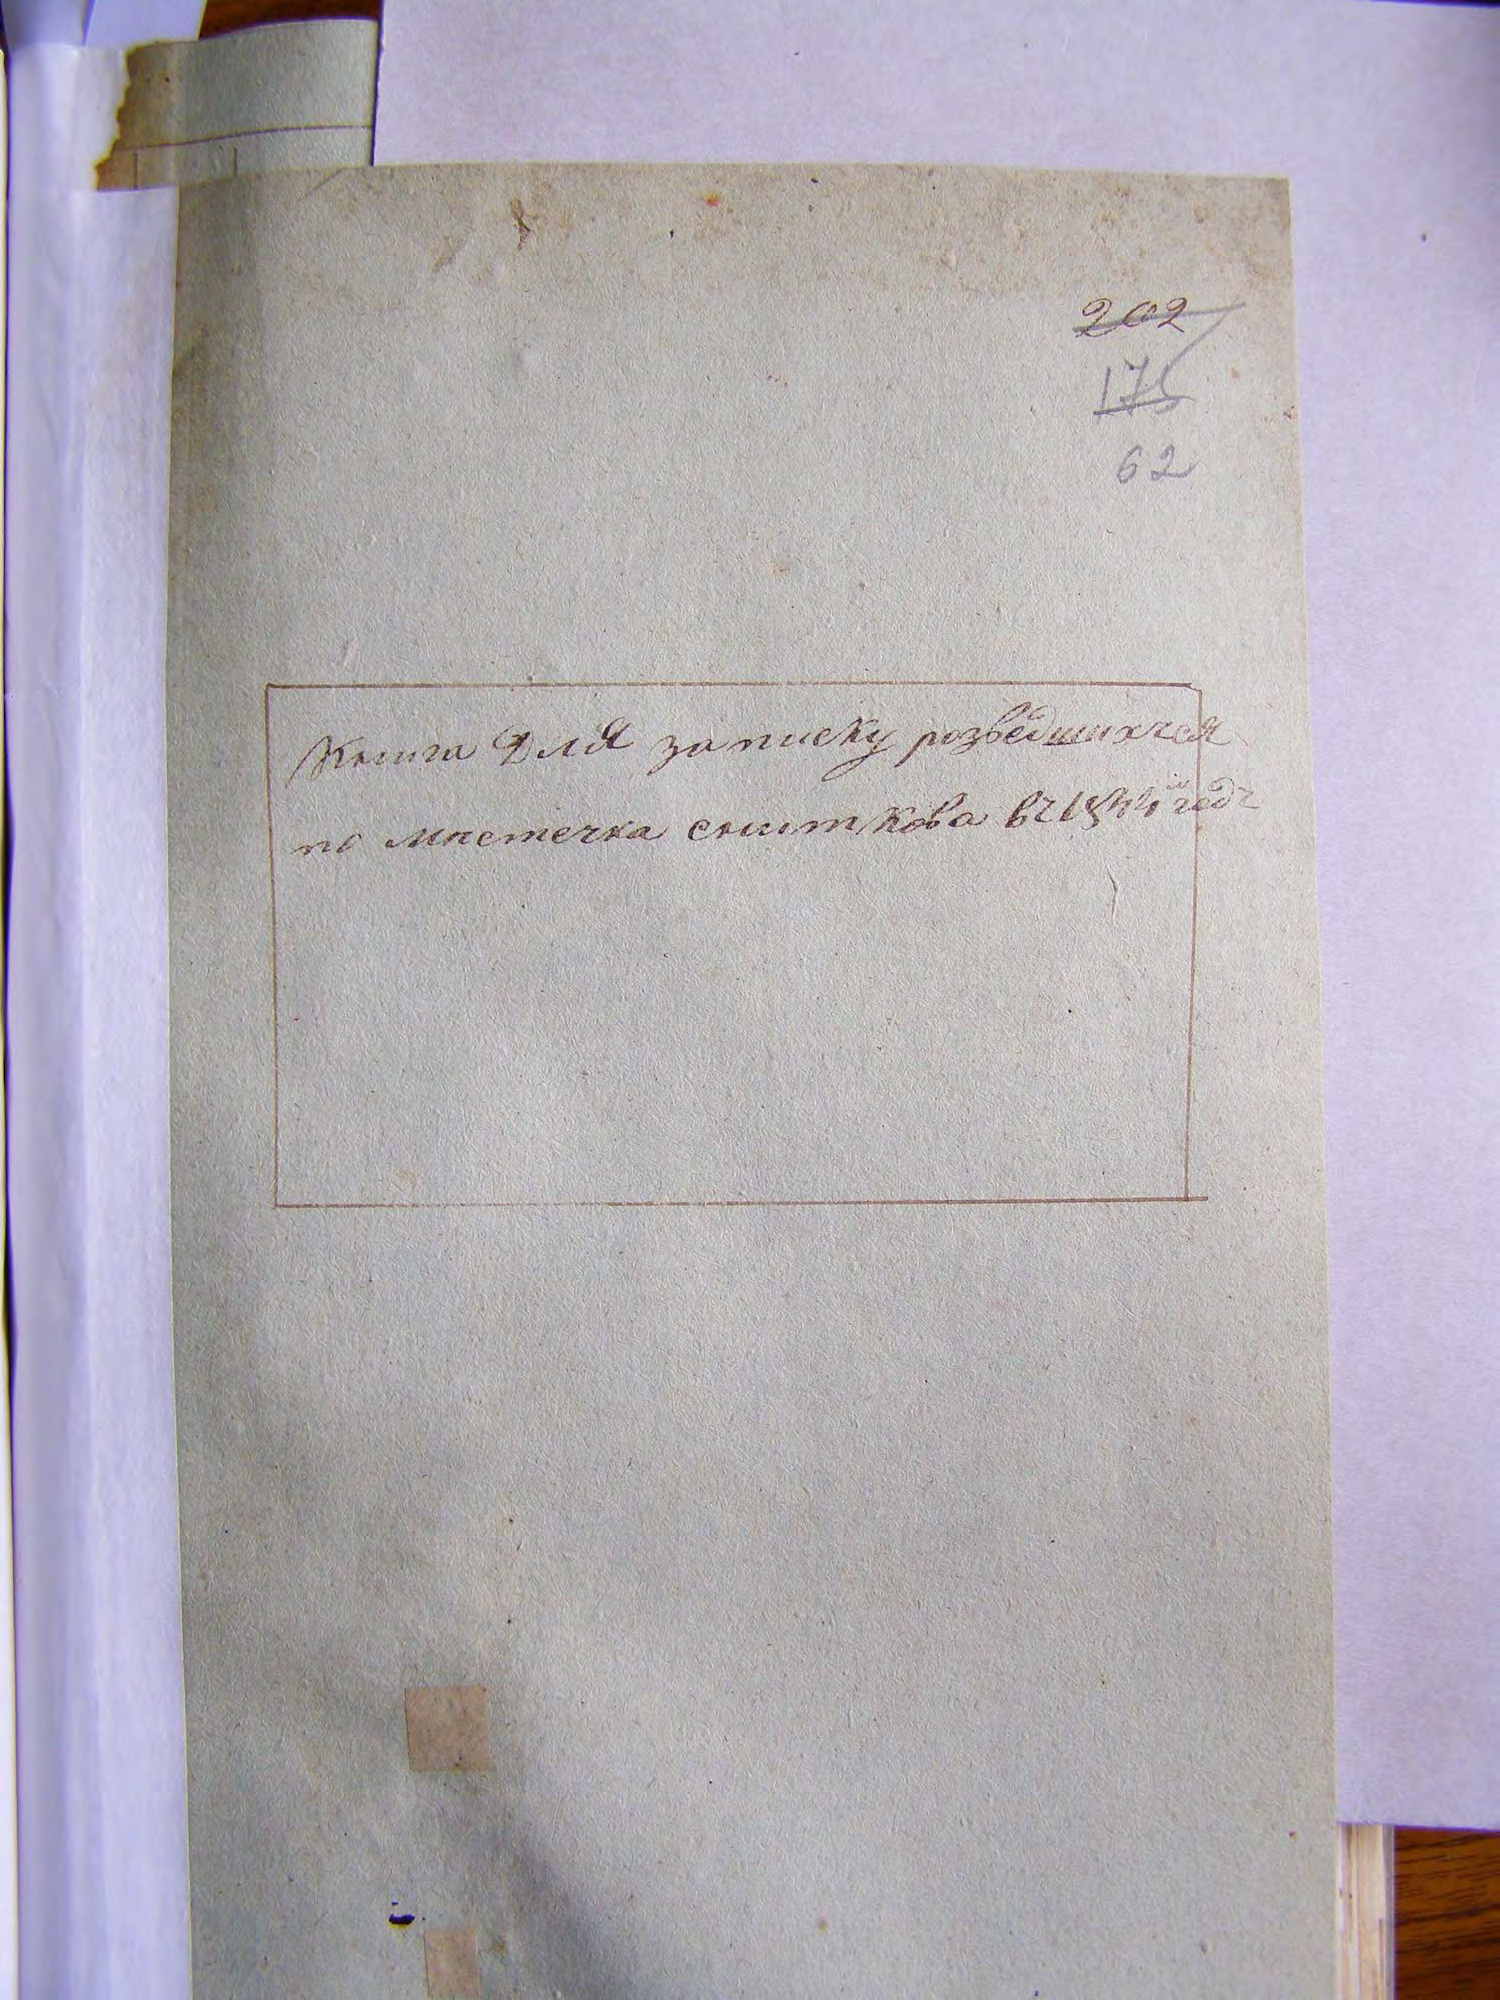 202
175
62
Книга Для записку розведшихся
по мистечка сниткова въ 1844м годъ